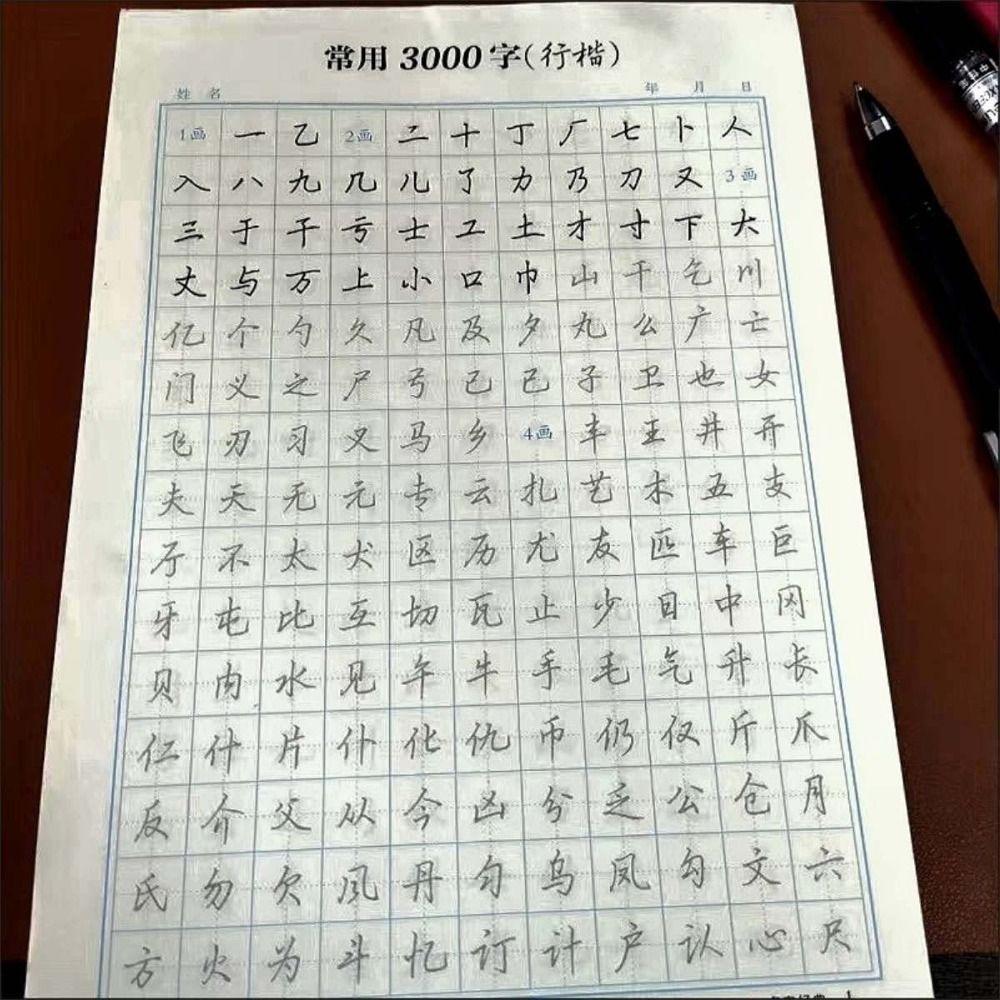 常用 3000 字(行楷)
姓 名 年 月 日
1画 一 乙 2画 二 十 丁 厂 七 卜 人
入 八 九 几 儿 了 力 乃 刀 又 3画
三 于 干 亏 士 工 土 才 寸 下 大
丈 与 万 上 小 口 巾 山 千 乞 川
亿 个 勺 久 凡 及 夕 丸 么 广 亡
门 义 之 尸 弓 己 已 子 卫 也 女
飞 刃 习 叉 马 乡 4画 丰 王 井 开
夫 天 无 元 专 云 扎 艺 木 五 支
厅 不 太 犬 区 历 尤 友 匹 车 巨
牙 屯 比 互 切 瓦 止 少 日 中 冈
贝 内 水 见 午 牛 手 毛 气 升 长
仁 什 片 仆 化 仇 币 仍 仅 斤 爪
反 介 父 从 今 凶 分 乏 公 仓 月
氏 勿 欠 风 丹 匀 乌 凤 勾 文 六
方 火 为 斗 忆 订 计 户 认 心 尺